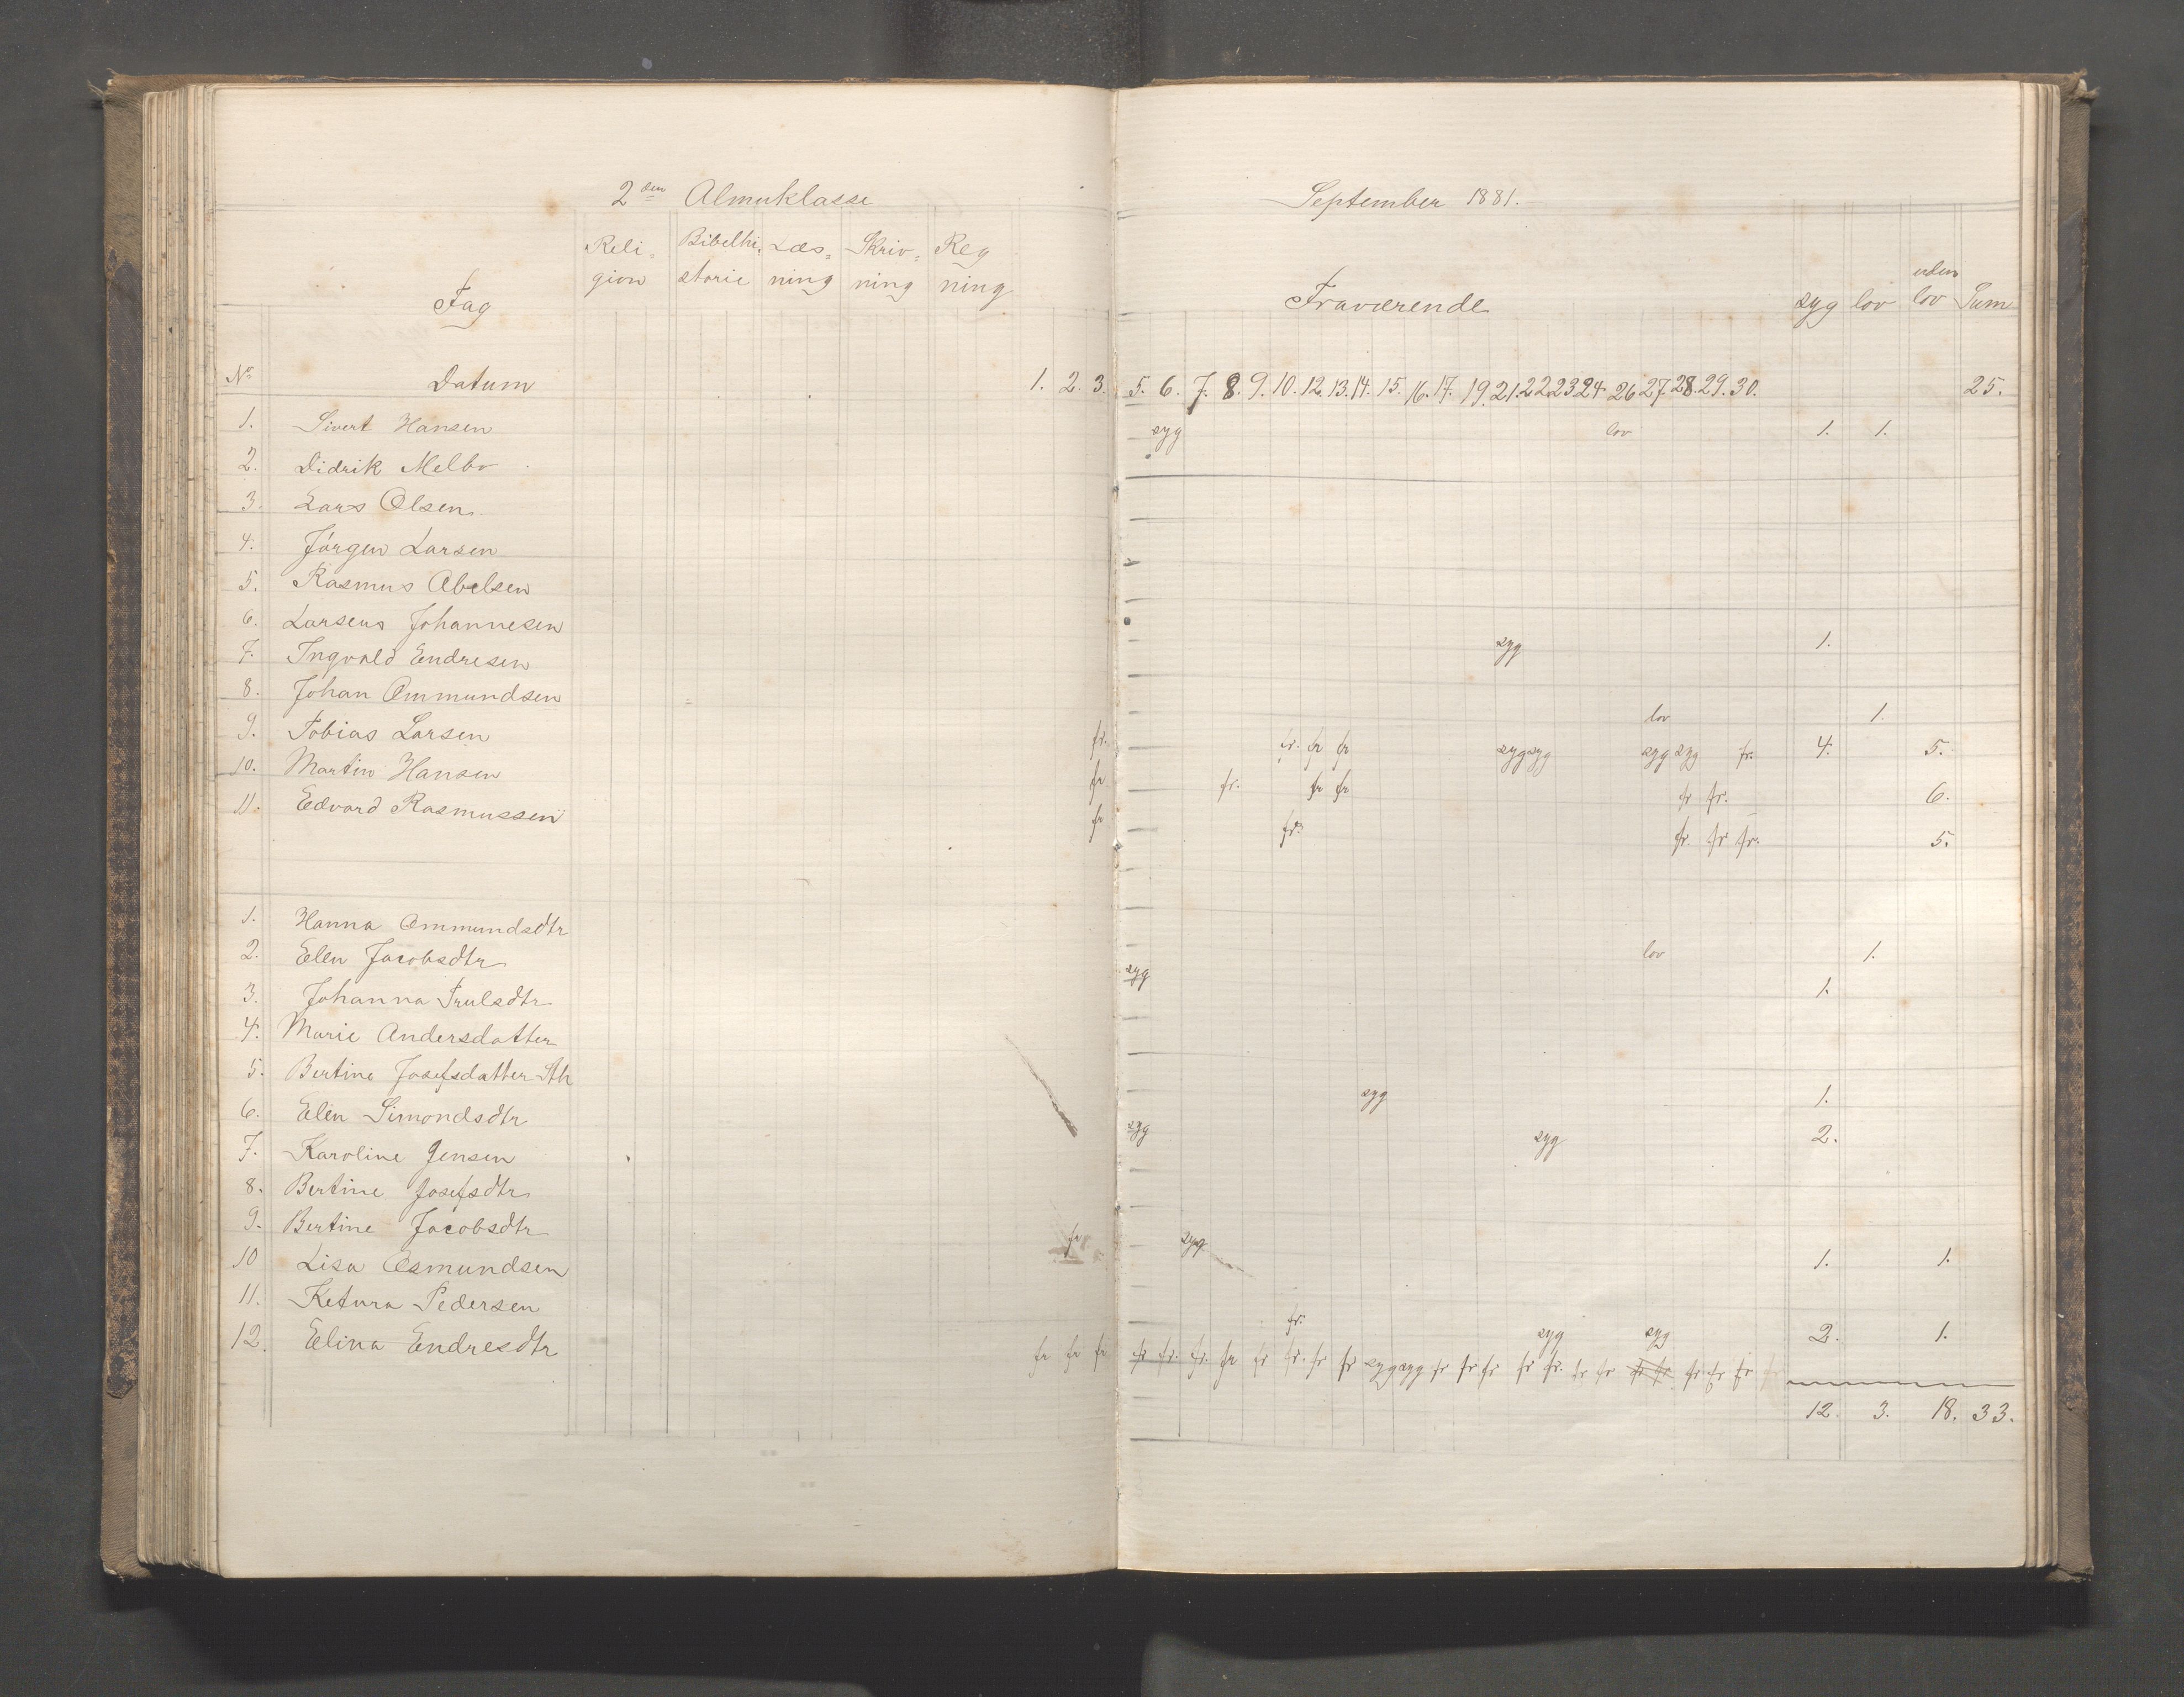 2den Almuklasse September 1881.
Fag Reli=gion Bibelhi=storie Læs=ning Skriv=ning Reg ning Fraværende syg lov uden lov Sum
No Datum 1. 2. 3. 5. 6. 7. 8. 9. 10. 12. 13. 14. 15. 16. 17. 19. 21. 22. 23. 24. 26 27. 28. 29. 30. 25.
1. Sivert Hansen syg lov 1. 1.
2. Didrik Melbo
3. Lars Olsen
4. Jörgen Larsen
5. Rasmus Abelsen
6. Larseus Johannesen
7. Ingvald Endresen syg 1.
8. Johan Ommundsen
9. Tobias Larsen lov 1.
10. Martin Hansen fr. fr. fr fr syg syg syg syg fr. 4. 5.
11. Edvard Rasmussen fr fr. fr fr fr fr. 6.
fr fr. fr. fr fr. 5.
1. Hanna Ommundsdtr
2. Elen Jacobsdtr lov 1.
3. Johanna Trulsdtr syg 1.
4. Marie Andersdatter
5. Bertine Josefsdatter Sth
6. Elen Simondsdtr syg 1.
7. Karoline Jensen syg syg 2.
8. Bertine Josefsdtr
9. Bertine Jacobsdtr
10 Lisa Osmundsen fr syg 1. 1.
11. Ketura Pedersen
12. Elina Endresdtr fr. syg syg 2. 1.
fr fr fr fr fr. fr. fr fr fr. fr fr syg syg fr fr fr fr fr. fr fr fr fr fr fr fr
12. 3. 18. 33.